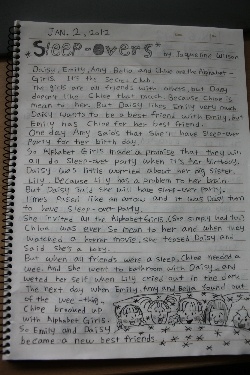 JAN. 2, 2012
*Sleep-overs*
by Jaqueline Wilson
Daisy, Emily, Amy Bella and Chloe are the Alphabet-
Girls. It's the secret club.
The girls are all friends with each, but Daisy
doesn't like Chloe that much. Because Chloe is
mean to her. But Daisy likes Emily very much.
Daisy wants to be a best friend with Emily, but
Emily has Chloe for her best friend.
One day Amy said's that she'll have sleep-over
Party for her birth day.
So Alphabet Girls made a promise that they will
all do Sleep-over party when it's her birthday.
Daisy was little worried about her big sister,
Lily. Because Lily has a problem to her brain.
But Daisy said she will have sleep-over party.
Times passed like an arrow, and it was Daisy turn
to have Sleep-over party.
She invited all the Alphabet Girls. (She simply had to)
Chloe was ever so mean to her and when they
watched a horror movie, she teased Daisy and
said she's a baby.
But when all friends were a sleep, Chloe needed a
wee. And she went to bathroom with Daisy, and
wetted her self when Lily cried out in the dark.
The next day when Emily, Amy and Bella found out
of the wee-thing,
Chloe breaked up
with Alphabet Girls.
So Emily and Daisy
became a new best friends